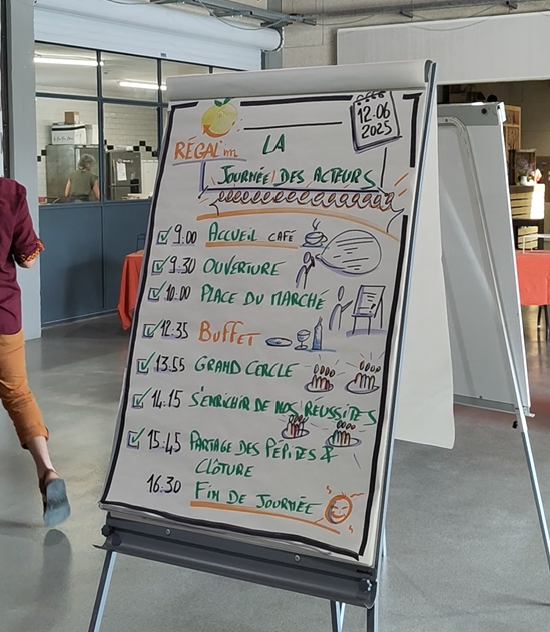 12.06
2025
RÉGAL'im
LA
JOURNÉE DES ACTEURS
9:00 ACCUEIL CAFÉ
9:30 OUVERTURE
10:00 PLACE DU MARCHÉ
12:35 BUFFET
13:55 GRAND CERCLE
14:15 S'ENRICHIR DE NOS RÉUSSITES
15:45 PARTAGE DES PÉPITES &
CLÔTURE
16.30 FIN DE JOURNÉE